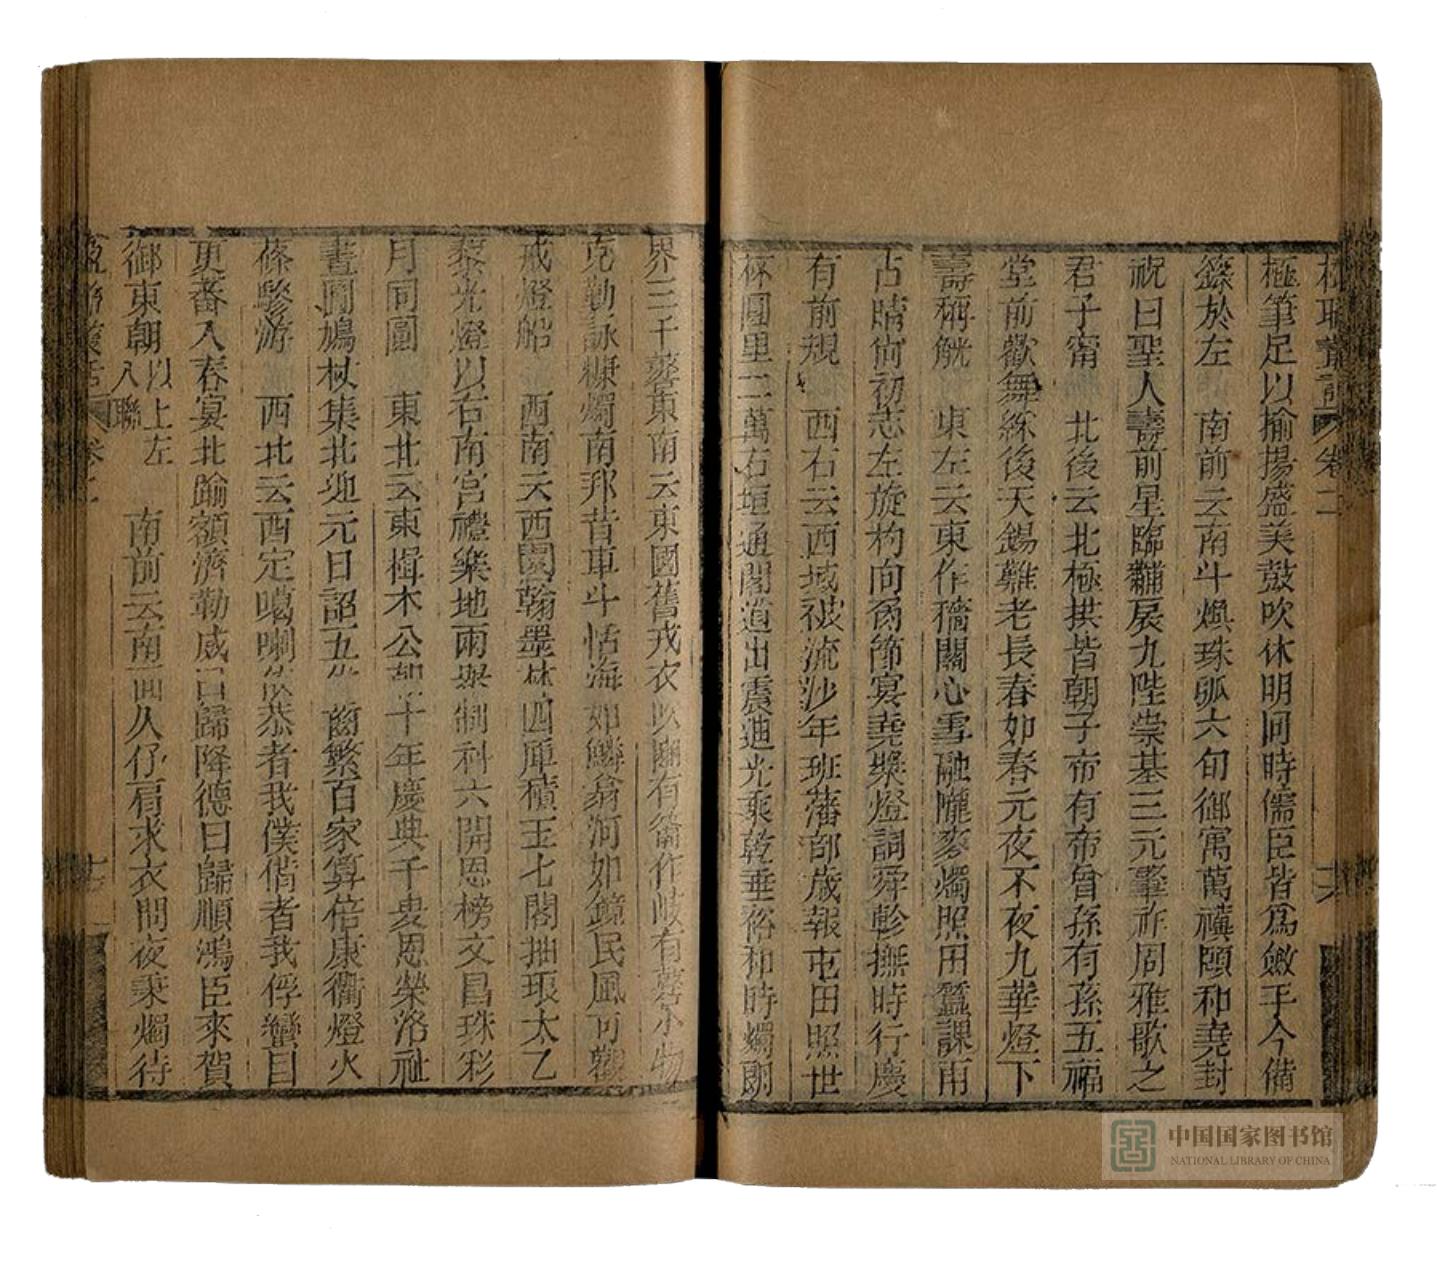 楹聯叢話 卷二 十六
極筆足以揄揚盛美鼓吹休明同時儒臣皆爲斂手今備
錄於左 南前云南斗煥珠弧六旬御寓萬禩頤和堯封
祝曰聖人壽前星臨黼扆九陛崇基三元肇祚周雅歌之
君子甯 北後云北極拱皆朝子帝有帝曾孫有孫五福
堂前歡舞綵後天錫難老長春如春元夜不夜九華燈下
壽稱觥 東左云東作穡關心雪融隴麥燭照田蠶課雨
占晴徜初志左旋杓向寅節宴堯槳燈詞舜軫撫時行慶
有前規 西右云西域被流沙年班藩部歲報屯田照世
杯圖里二萬右垣通閣道出震迪光乘乾垂裕和時燭朗
界三千 東南云東國舊戎衣 有 作 有 物
克勤詠糠燭南邦昔車斗恬海如鱗翕河如鏡民風可觀
戒燈船 西南云西園翰墨林四庫積玉七閣抽琅太乙
藜光燈以右南宮禮樂地兩舉制科六開恩榜文昌珠彩
月同圓 東北云東楫木公 十年慶典千叟恩榮洛社
晝圖鳩杖集北迎元日詔五代 繁百家算倍康衢燈火
篠驂游 西北云西定噶喇 恭者我僕偕者我俘蠻目
更番入春宴北 額濟勒咸曰歸降德曰歸順鴻臣來賀
御東朝以上左入聯 南前云南面久仔肩求衣問夜秉燭待
楹聯叢話 卷二 十七
中国国家图书馆
NATIONAL LIBRARY OF CHINA